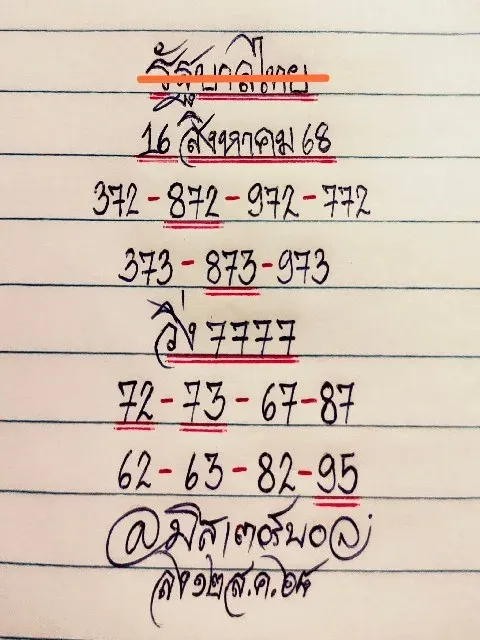 รัฐบาลไทย
16 สิงหาคม 68
372-872-972-772
373-873-973
วิ่ง 7777
72-73-67-87
62-63-82-95
@มิสเตอร์บอล
ส่ง๑๒ส.ค.๖๘